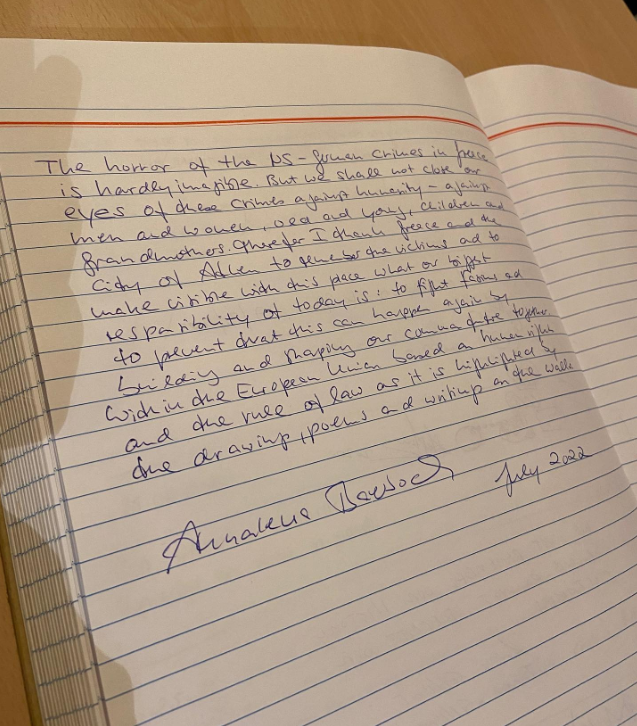 The horror of the NS-German crimes in Greece
is hardly imagible. But we shall not close our
eyes of these crimes against humanity - against
men and women, old and young, children and
grandmothers. Therefor I thank Greece and the
city of Athen to remember the victims ad to
make visible with this place what our biggest
responsibility of today is: to fight facism ad
to prevent that this can happen again by
building and shaping our common future together
within the European Union based on human rights
and the rule of law as it is highlighted by
the drawings, poems and writings on the walls
Annalena Baerbock July 2022